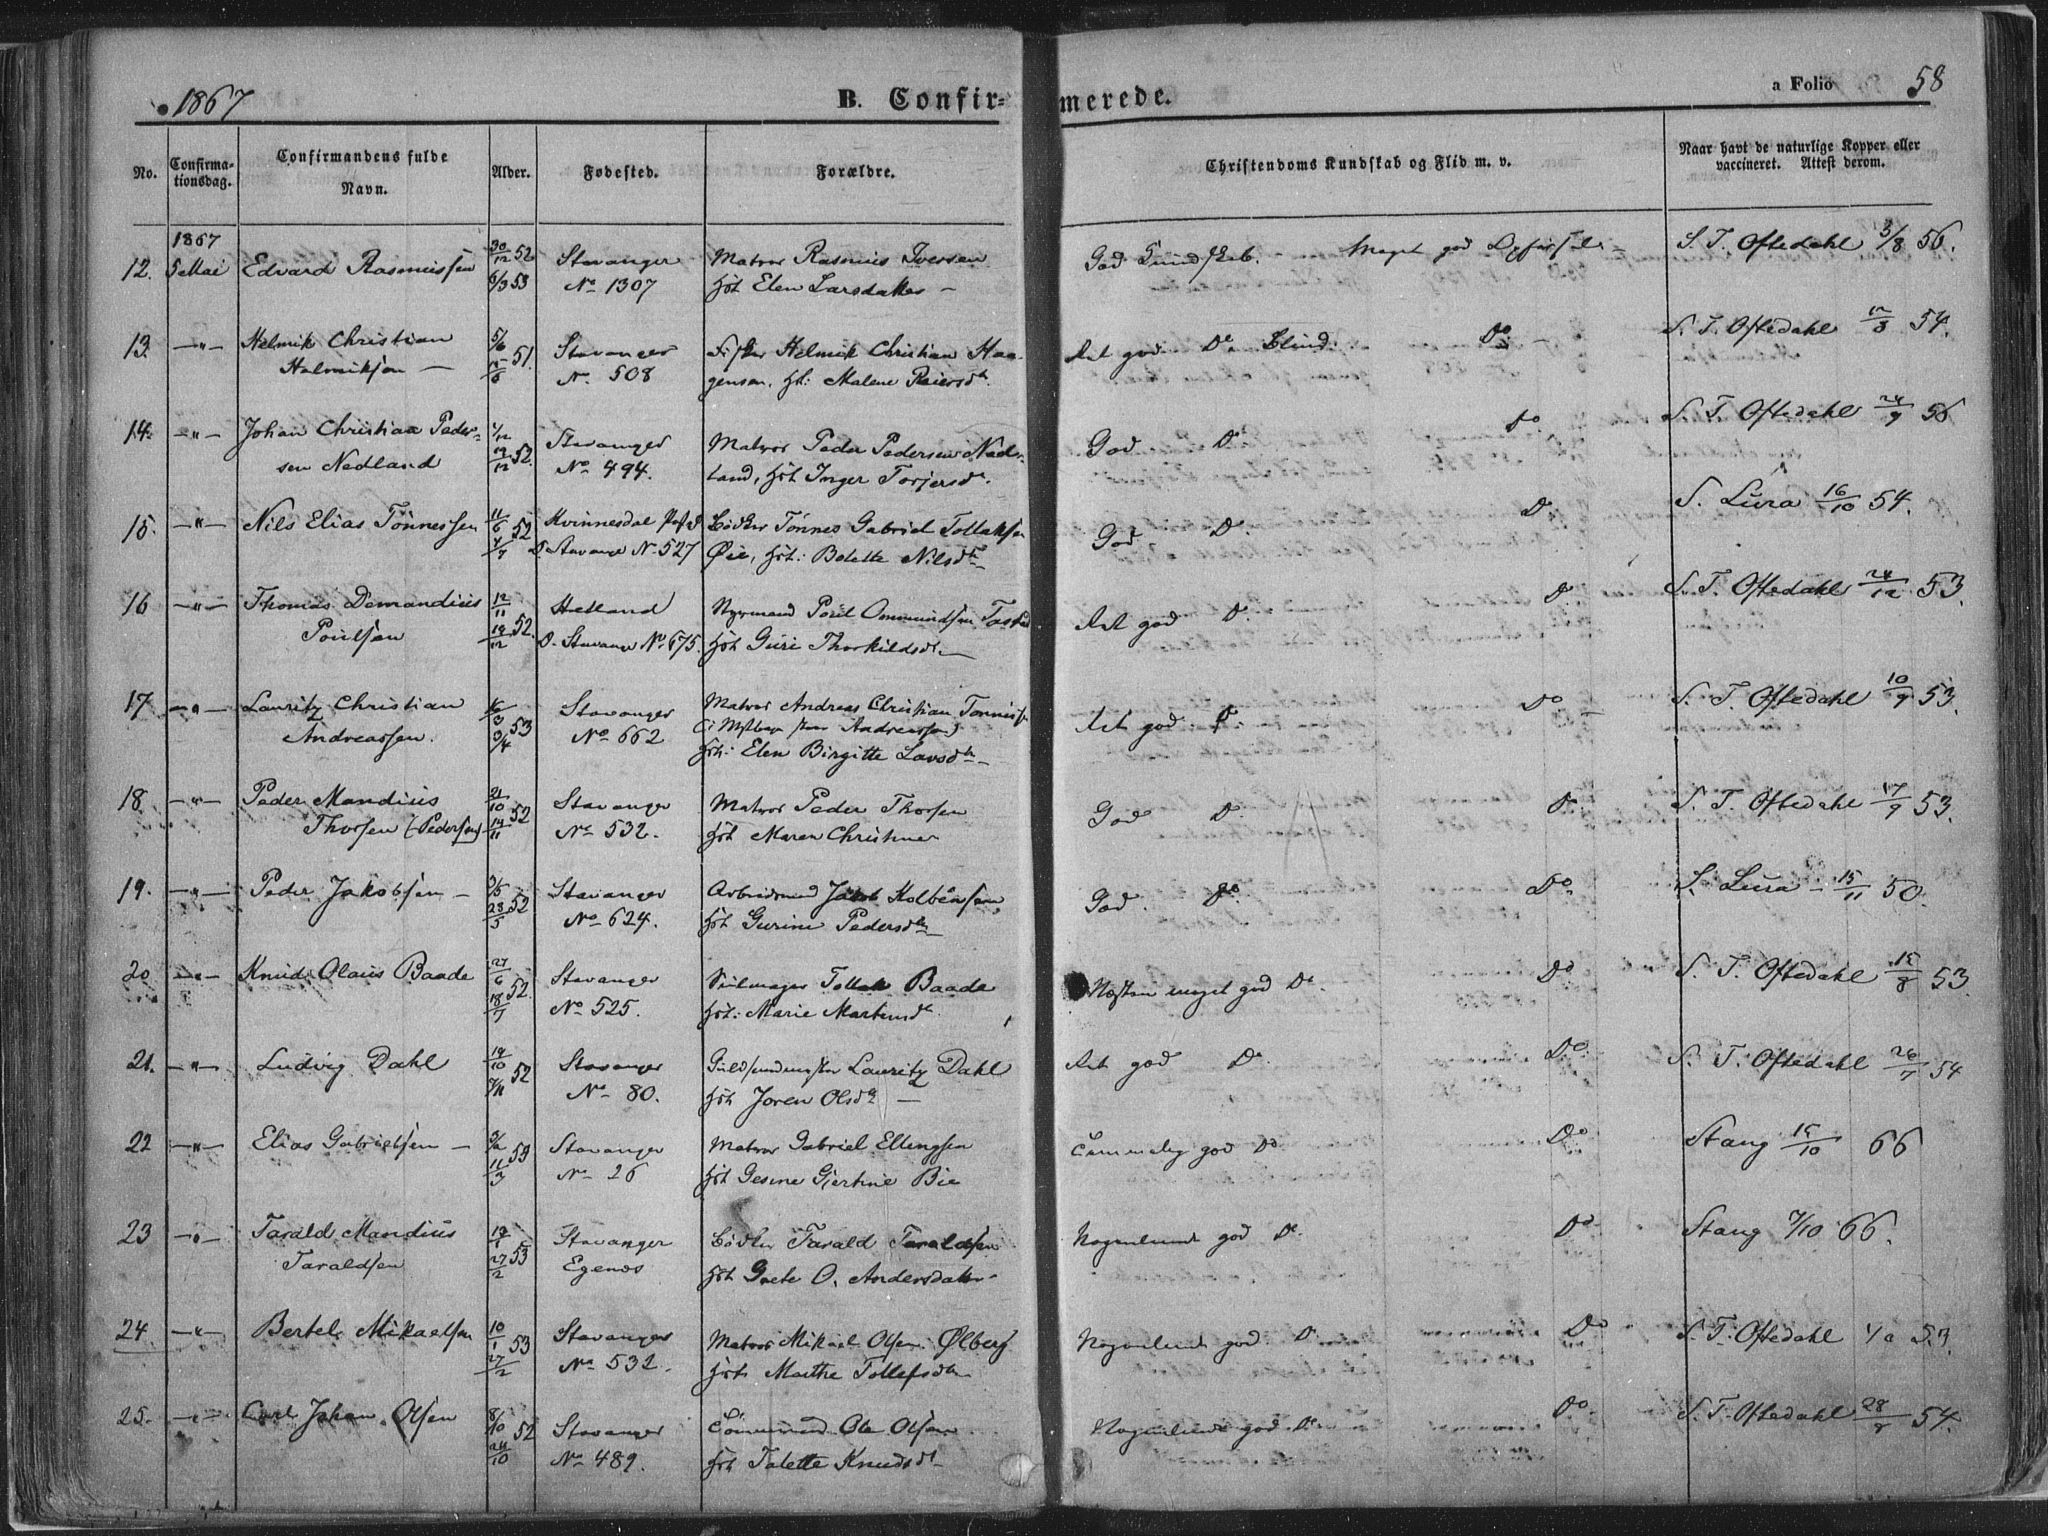 1867
B. Confir-
merede.
a Folio 58
No.
Confirma-
tionsdag.
Confirmandens fulde
Navn.
Alder.
Fødested.
Forældre.
Christendoms Kundskab og Flid m. v.
Naar havt de naturlige Kopper eller
vaccineret. Attest derom.
1867
12. 5 Mai Edvard Rasmussen 30/12 52 Stavanger Matros Rasmus Iversen God Kundskab. Meget god S. T. Oftedahl 3/8 56.
6/3 53 No 1307 Hst Elen Larsdatter –
13. –"– Helmik Christian 5/6 Stavanger Helmik Christian Haa- Ret god Do Do – S. T. Oftedahl 12/8 54.
Helmiksen – 51. No. 508 gensen, Hst: Malene Reiersdtr.
14. –"– Johan Christian Peder- 1/12 Stavanger Matros Peder Pedersen Ned- God Do Do S. T. Oftedahl 24/9 56
sen Nedland 19/12 52. No 494. land, Hst Inger Torjersdtr.
15. –"– Nils Elias Tönnessen 11/6 52 Kvinnesdal Bödker Tönnes Gabriel Tollaksen God Do Do S. Lura 16/10 54.
D. Stavanger No. 527 Øie, Hst: Bolette Nilsdtr
16 –"– Thomas Demandius 12/11 Hetland Poul Ommundsen Tasta Ret god Do Do S. T. Oftedahl 24/12 53.
Poulsen 19/12 52. D. Stavanger No 675. Hst Guri Thorkildsdtr
17 –"– Lauritz Christian Stavanger Matros Andreas Christian Tönnessen Ret god Do Do – S. T. Oftedahl 10/9 53.
Andreassen. 3/4 53 No 662 Andreassen)
Hst: Elen Birgitte Larsdtr –
18 –"– Peder Mandius 21/10 Stavanger Matros Peder Thorsen God Do Do S. T. Oftedahl 17/9 53.
Thorsen (Pedersen) 14/11 52 No 532. Hst Maren Christine
19. –"– Peder Jakobsen – 3/5 Stavanger Jakob Kolbensen God. Do Do S. Lura – 15/11 50.
28/5 52 No 624. Hst Gurine Pedersdtr
20 –"– Knud Olaus Baade 27/6 Stavanger Seilmager Tollak Baade Næsten meget god Do Do S. T. Oftedahl 15/8 53.
18/7 52. No 525. Hst: Marie Martinsdtr.
21. –"– Ludvig Dahl 19/10 Stavanger Guldsmedmester Lauritz Dahl Ret god Do Do S. T. Oftedahl 26/7 54
7/11 52 No 80. Hst Joren Olsdtr –
22 –"– Elias Gabrielsen – Stavanger Matros Gabriel Ellingsen Temmelig god Do Do Stang 15/10 66
11/3 53 No 26 Hst Gesine Gjertine Bie
23 –"– Tarald Mandius Stavanger Bödker Tarald Taraldsen Nogenlunde god Do Do Stang 7/10 66.
Taraldsen 27/2 53 Egenes Hst Grete O. Andersdatter
24. –"– Bertel Mikaelsen 10/1 53 Stavanger Matros Mikael Olsen Ølberg Nogenlunde god Do Do S. T. Oftedahl 53.
27/2 No 532. Hst Marthe Tollefsdtr
25. –"– Carl Johan Olsen 8/10 52 Stavanger Ole Olsen Nogenlunde god Do Do S. T. Oftedahl 28/8 54.
24/10 No 489. Hst Talette Knudsdtr